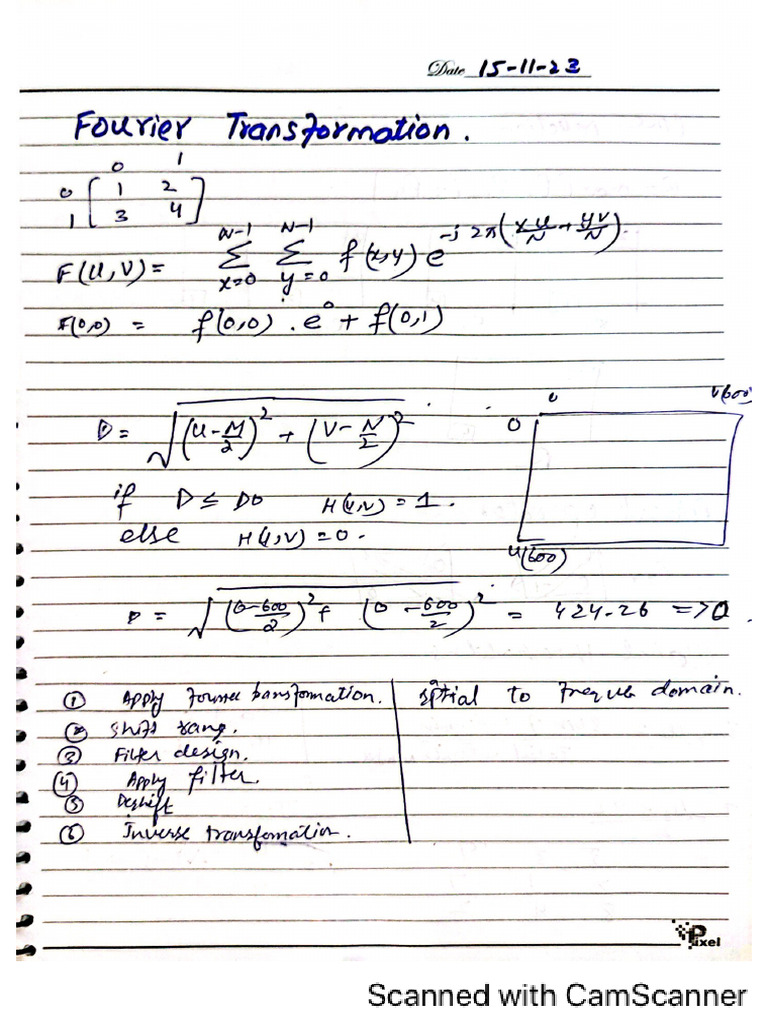 Date 15-11-23
Fourier Transformation.
0 1
0 [ 1 2 ]
1 [ 3 4 ]
F(u,v) = N-1 Σ x=0 N-1 Σ y=0 f(x,y) e^-j2π(xu/N + yv/N).
F(0,0) = f(0,0) . e^0 + f(0,1)
0 V(600)
0
D = √(u-M/2)^2 + (v-N/2)^2
if D ≤ D0 H(u,v) = 1.
else H(u,v) = 0.
U(600)
D = √(0-600/2)^2 + (0-600/2)^2 = 424.26 => 0.
① Apply transformation. | to domain.
② Shift
③ Filter design.
④ Apply filter.
⑤ Deshift
⑥ Inverse transfomation.
Pixel
Scanned with CamScanner